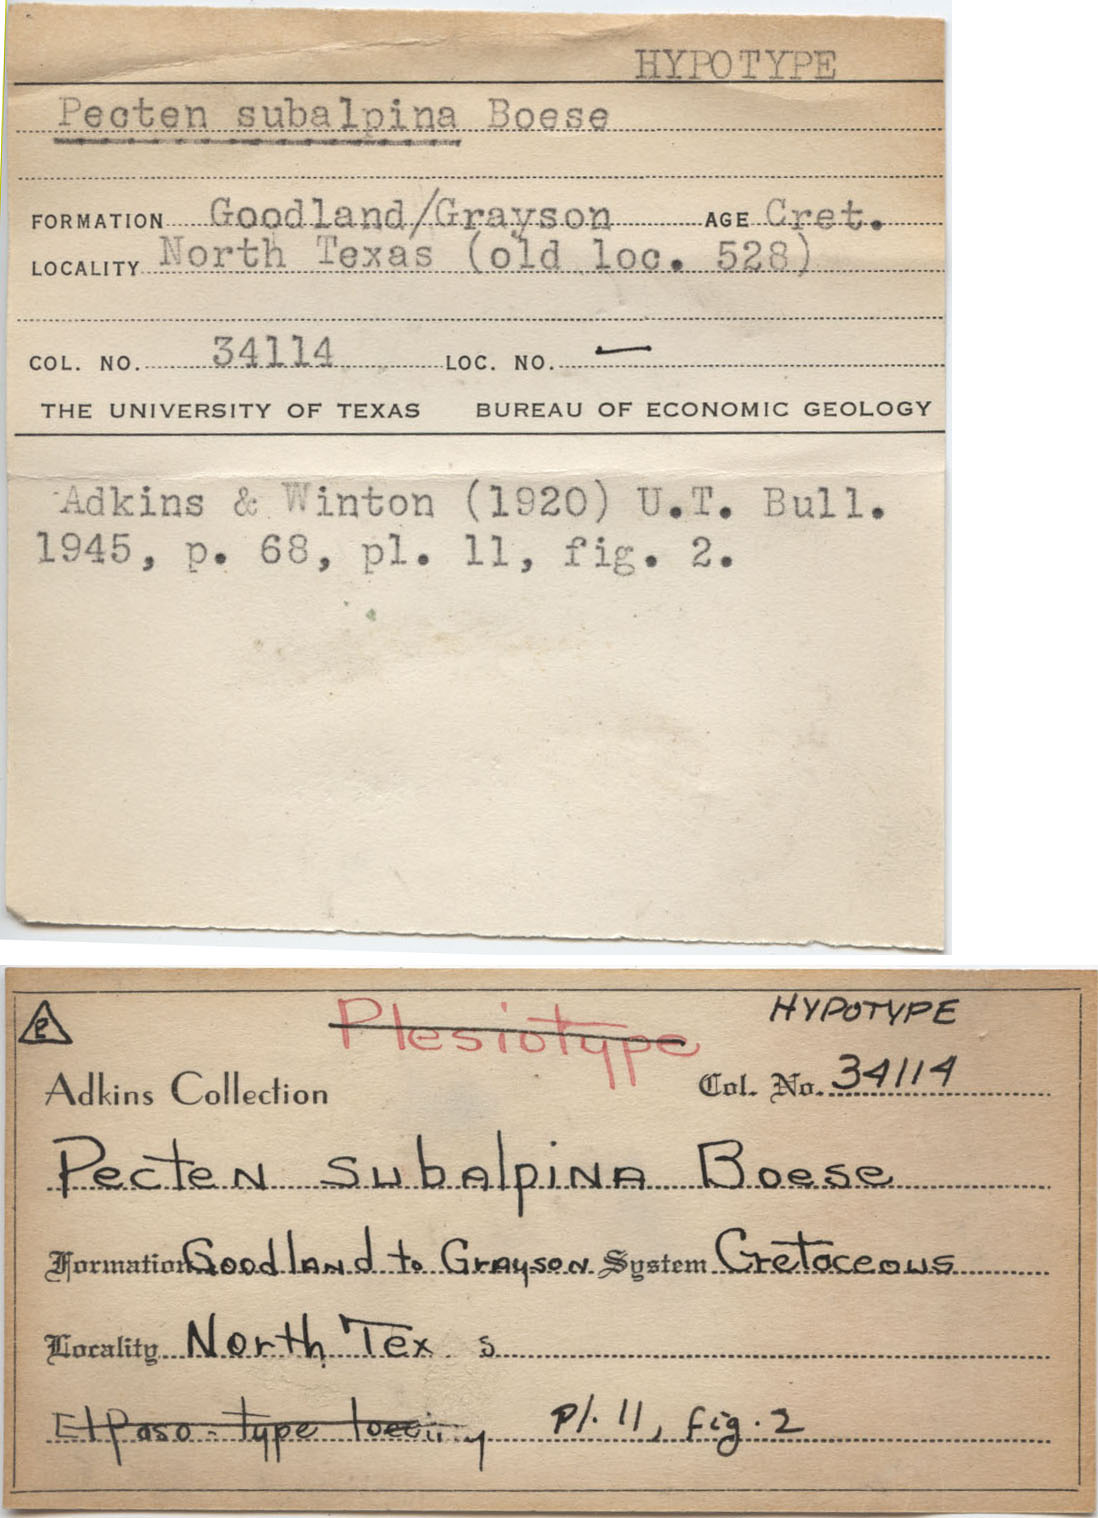 HYPOTYPE
Pecten subalpina Boese
FORMATION Goodland/Grayson AGE Cret.
LOCALITY North Texas (old loc. 528)
COL. NO. 34114 LOC. NO. —
THE UNIVERSITY OF TEXAS BUREAU OF ECONOMIC GEOLOGY
Adkins & Winton (1920) U.T. Bull.
1945, p. 68, pl. 11, fig. 2.
e Plesiotype HYPOTYPE
Adkins Collection Col. No. 34114
Pecten subalpina Boese
Formation Goodland to Grayson System Cretaceous
Locality North Tex s
El Paso - type pl. 11, fig. 2